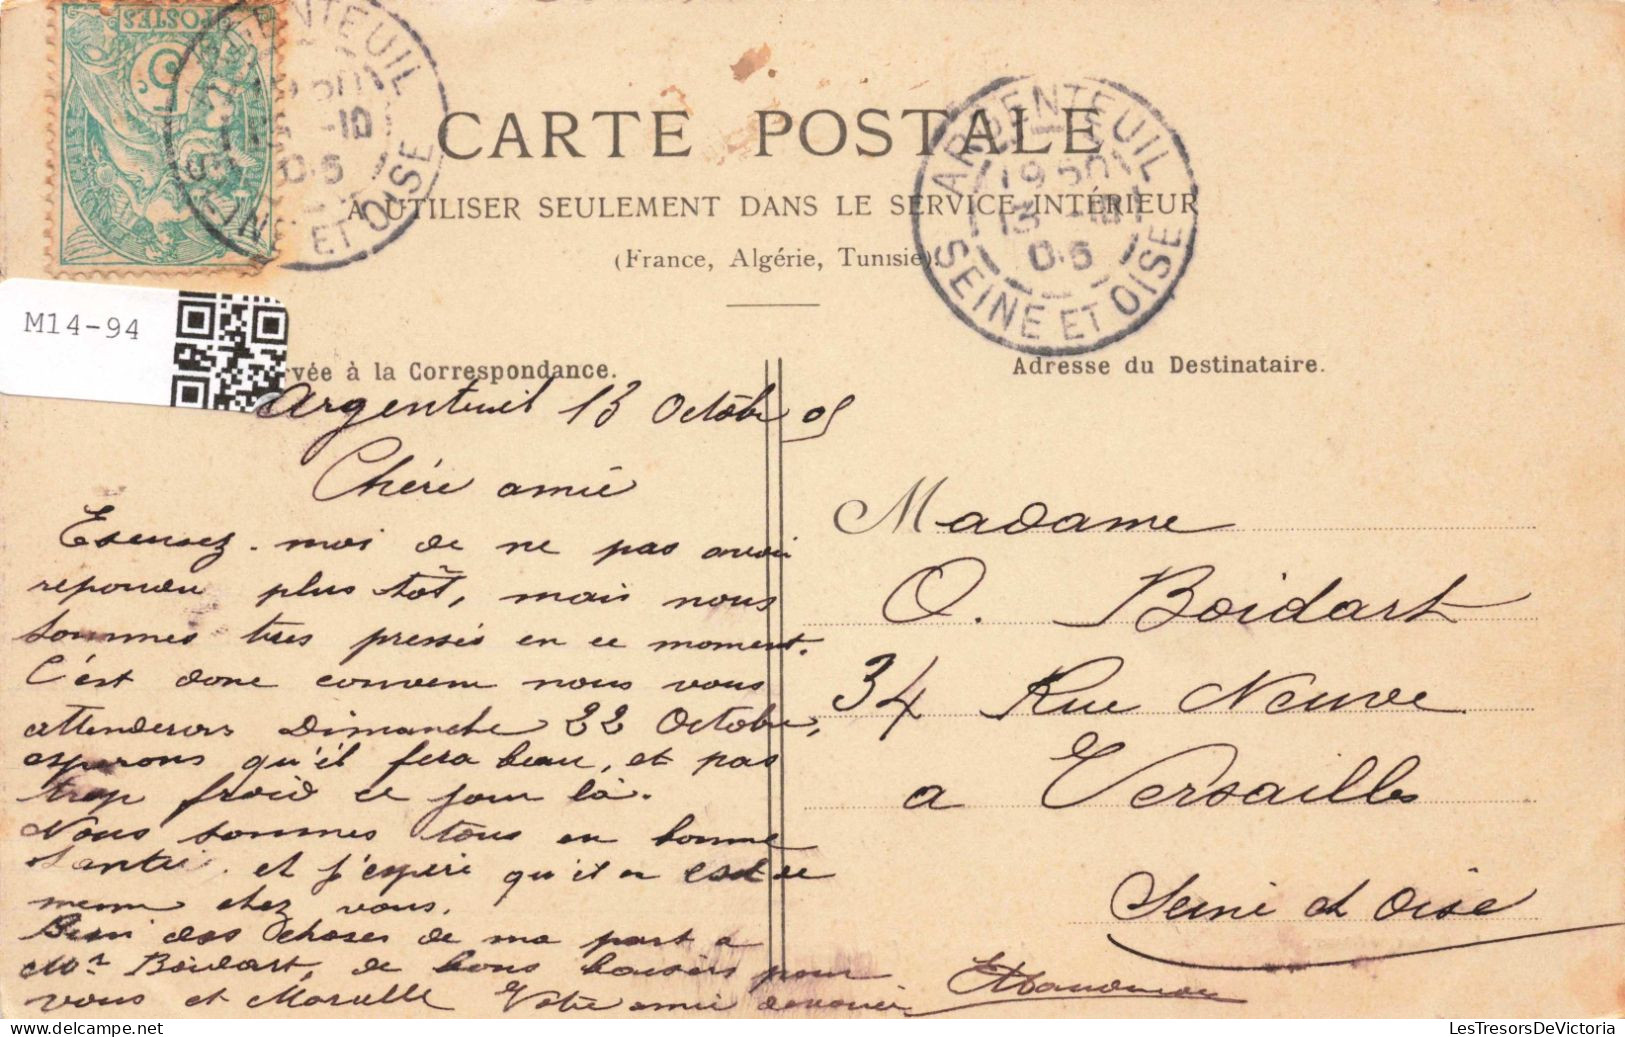 POSTES
ARGENTEUIL
SEINE ET OISE
CARTE POSTALE
A UTILISER SEULEMENT DANS LE SERVICE INTÉRIEUR
(France, Algérie, Tunisie).
ARGENTEUIL
1950
13 -10
05
SEINE ET OISE
M14-94
rvée à la Correspondance.
Adresse du Destinataire.
Argenteuil 13 Octobre 05
Chère amie
Excusez-moi de ne pas avoir
repondu plus tôt, mais nous
sommes très pressés en ce moment.
C'est donc convenu nous vous
attenderons Dimanche 22 Octobre,
esperons qu'il fera beau, et pas
trop froid ce jour là.
Nous sommes tous en bonne
santé. et j'espère qu'il en est de
meme chez vous.
Bien des choses de ma part a
Mr Boidart, de bons baisers pour
vous et Marcelle Votre amie devouée
Madame
O. Boidart
34 Rue Neuve
a Versailles
Seine et Oise
LesTresorsDeVictoria